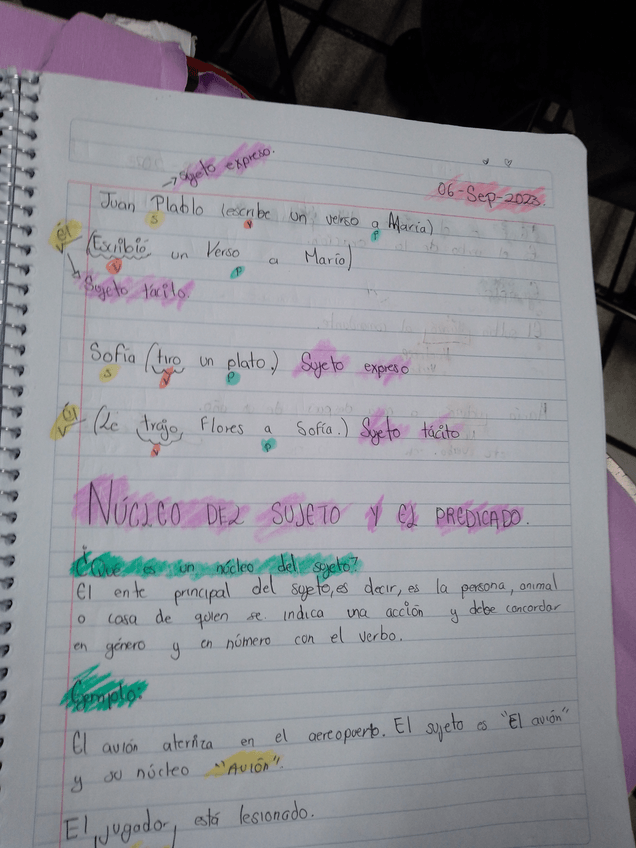 → Sujeto expreso.
06-Sep-2023.
Juan Plablo (escribe un verso a María)
S V P
él (Escribió un Verso a María)
V P
Sujeto tácito.
Sofía (tiro un plato.) Sujeto expreso
S V P
Él (Le trajo, Flores a Sofía.) Sujeto tácito
V P
NÚCLEO DEL SUJETO Y EL PREDICADO.
¿Qué es un núcleo del sujeto?
El ente principal del sujeto, es decir, es la persona, animal
o casa de quien se indica una acción y debe concordar
en género y en número con el verbo.
Ejemplo:
El avión aterriza en el aereopuerto. El sujeto es "El avión"
y su núcleo "AVIÓN".
El jugador, está lesionado.